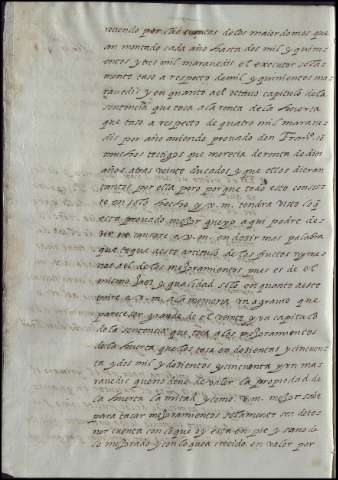 reciendo por las cuentas de los maiordomos que
an montado cada año hasta dos mil y quinien
entos y tres mil maravedis el executor se las
monte taso a respecto de mil y quinientos ma
ravedis y en quanto al octavo capitulo de la
sentencia que toca a la renta de la huerta
que taso a respecto de quatro mil marave
dis por año aviendo provado don Franco co
muchos testigos que merecia de renta de diez
años atras veinte ducados y que ellos dieran
tanto por ella pero porque todo esto consis
te en solo hecho y v. m. tendra visto lo que
esta provado mejor que yo aqui podre de
sir no cansare a v. m. en decir mas palabra
que toque deste articulo de los fructos ny me
nos del de los mejoramientos pues es de el
mismo jaez y qualidad solo en quanto a este
traere a v. m. a la memoria un agravio que
parece ser grande de el veinte y un capitulo
de la sentencia que toca a los mejoramientos
de la huerta que los tasa en dozientos y cincuen
ta y dos mil y dozientos y cinquenta y un mara
vedis que no deve de valer la propiedad de
la huerta la mitad y como v. m. mejor sabe
para tasar mejoramientos solamente se a de te
ner cuenta con lo que oy esta en pie y sano de
lo mejorado y con lo que a crecido en valor por